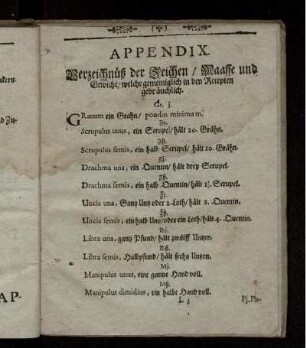 APPENDIX.
Verzeichnüß der Zeichen / Maasse und
Gewicht / welche gemeiniglich in den Recepten
gebräuchlich.
Gr. j.
GRanum ein Grähn / pondus minimum.
℈j.
Scrupulus unus, ein Scrupel / hält 20. Grähn.
℈ß.
Scrupulus semis, ein halb Scrupel / hält 10. Grähn.
ʒj.
Drachma una, ein Quentin / hält drey Scrupel.
ʒß.
Drachma semis, ein halb Quentin / hält 1½. Scrupel.
℥j.
Uncia una, Gantz Untz oder 2. Loth / hält 8. Quentin.
℥ß.
Uncia semis, ein halb Untz / oder ein Loth / hält 4. Quentin.
℔j.
Libra una, gantz Pfund / hält zwölff Untzen.
℔ß.
Libra semis, Halbpfund / hält sechs Untzen.
Mj.
Manipulus unus, eine gantze Hand voll.
Mß.
Manipulus dimidius, ein halbe Hand voll.
L j
Pj. Pu-
AP-